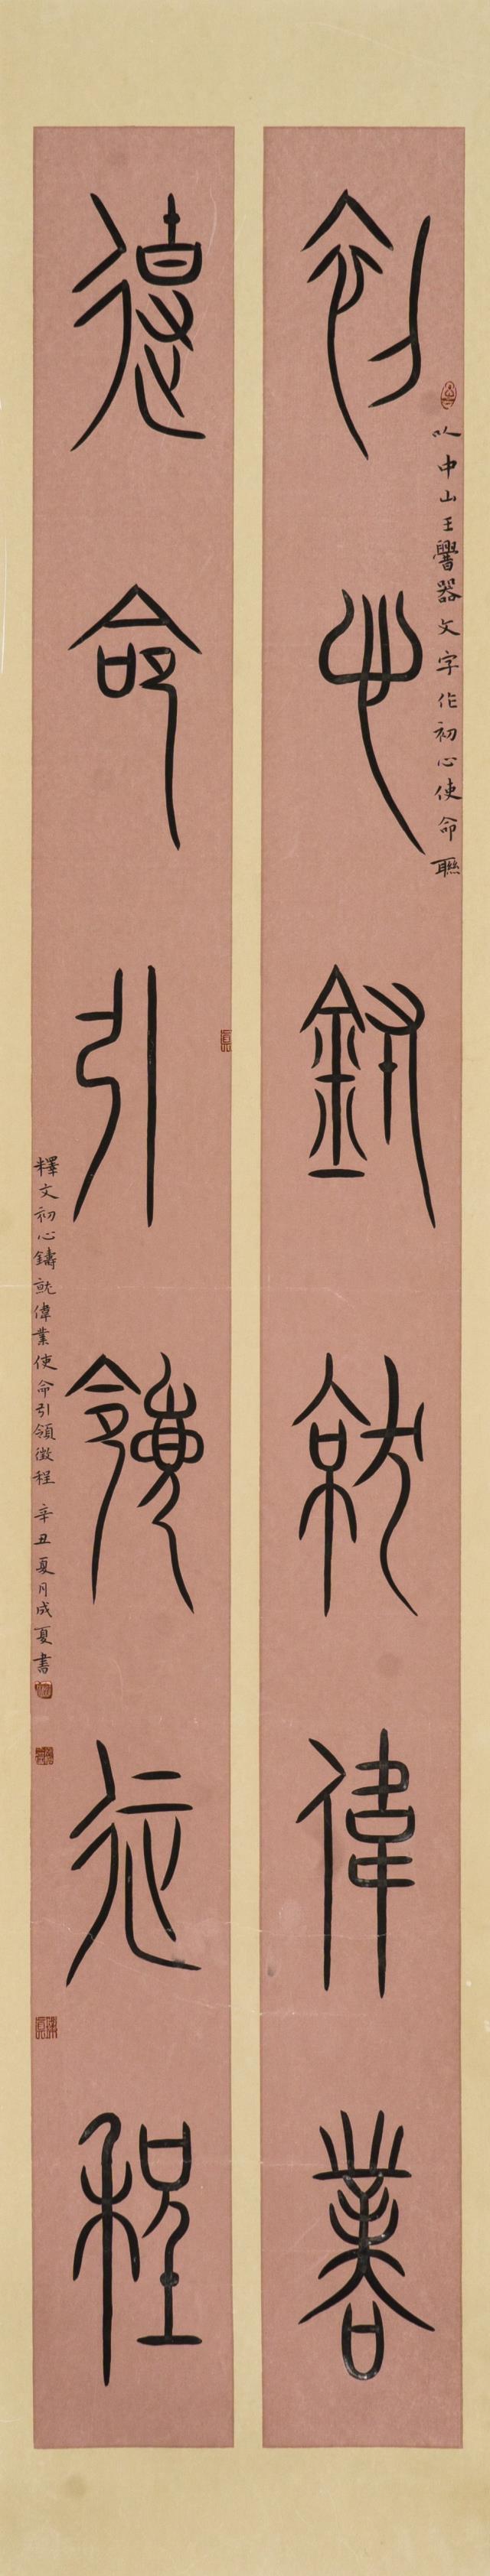 以中山王𰯼器文字作初心使命聯
初心鑄就偉業
使命引領徵程
釋文初心鑄就偉業使命引領徵程 辛丑夏月成夏書